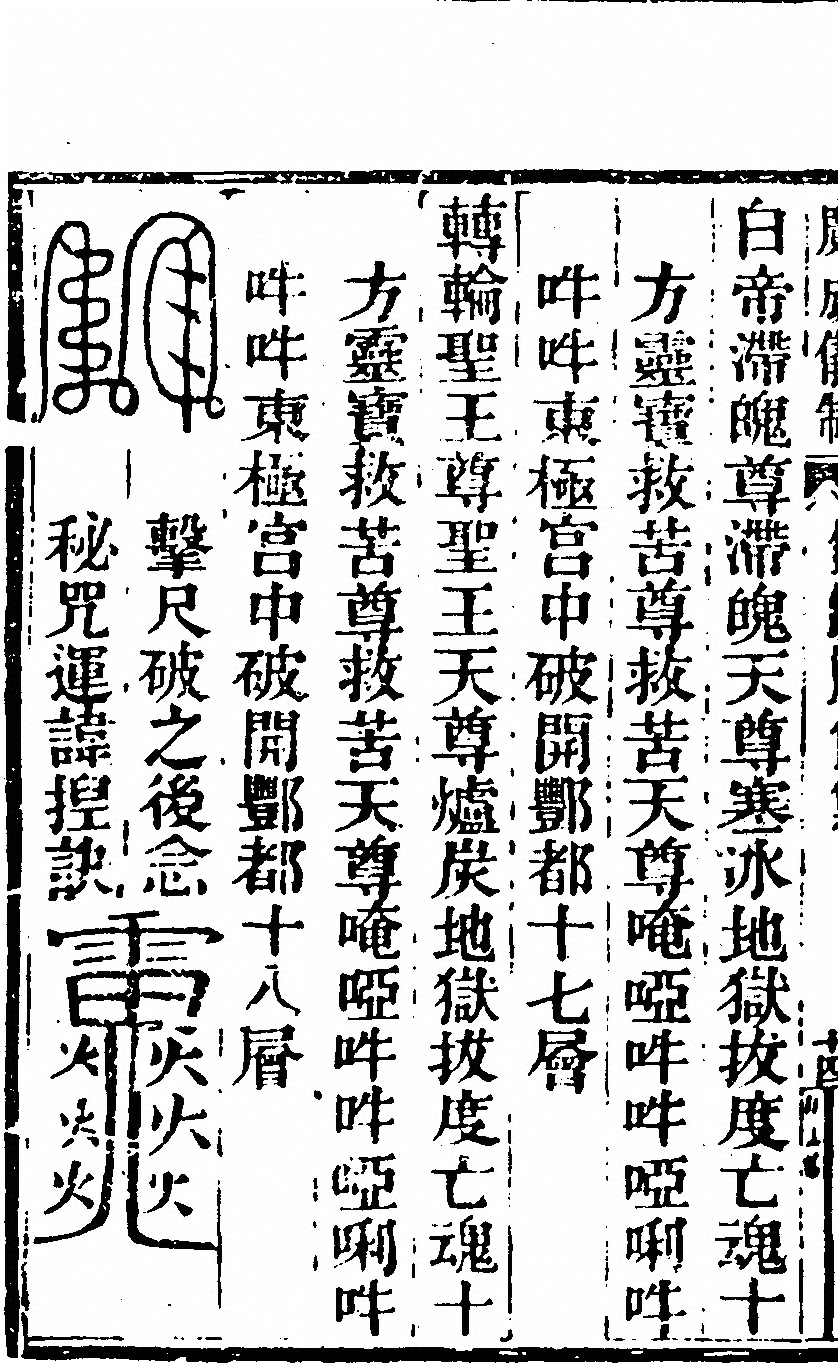 白帝滯魄尊滯魄天尊寒冰地獄拔度亡魂十
方靈寶救苦尊救苦天尊唵啞吽吽啞唎吽
吽吽東極宮中破開酆都十七層
轉輪聖王尊聖王天尊爐炭地獄拔度亡魂十
方靈寶救苦尊救苦天尊唵啞吽吽啞唎吽
吽吽東極宮中破開酆都十八層
擊尺破之後念
秘咒運諱揑訣
火火火
火火火